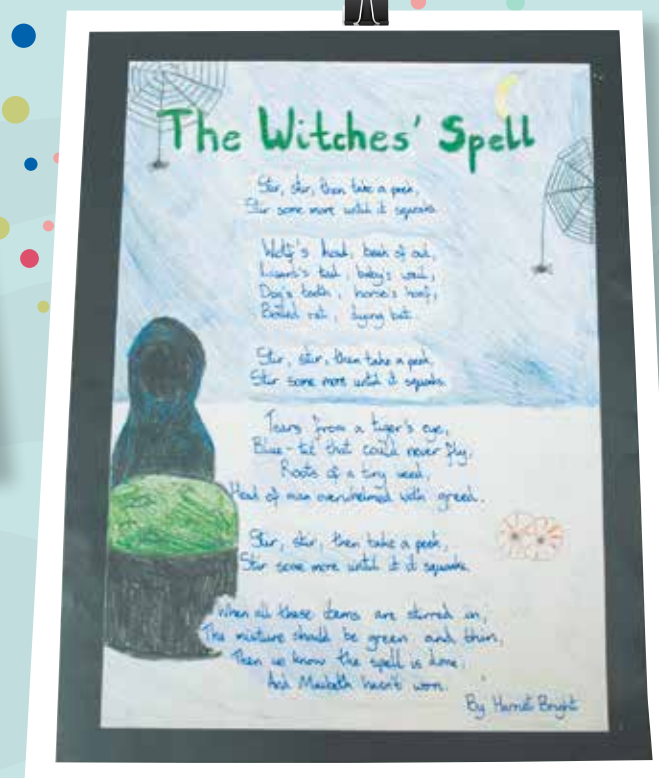 The Witches' Spell
Stir, stir, then take a peek,
Stir some more until it squeaks.
Wolf's head, beak of owl,
Lizard's tail, baby's wail,
Dog's tooth, horse's hoof,
Boiled rat, dying bat.
Stir, stir, then take a peek,
Stir some more until it squeaks.
Tears from a tiger's eye,
Blue-tit that could never fly,
Roots of a tiny weed,
Head of man overwhelmed with greed.
Stir, stir, then take a peek,
Stir some more until it squeaks.
When all these items are stirred in,
The mixture should be green and thin,
Then we know the spell is done,
And Macbeth hasn't won.
By Harriet Bright